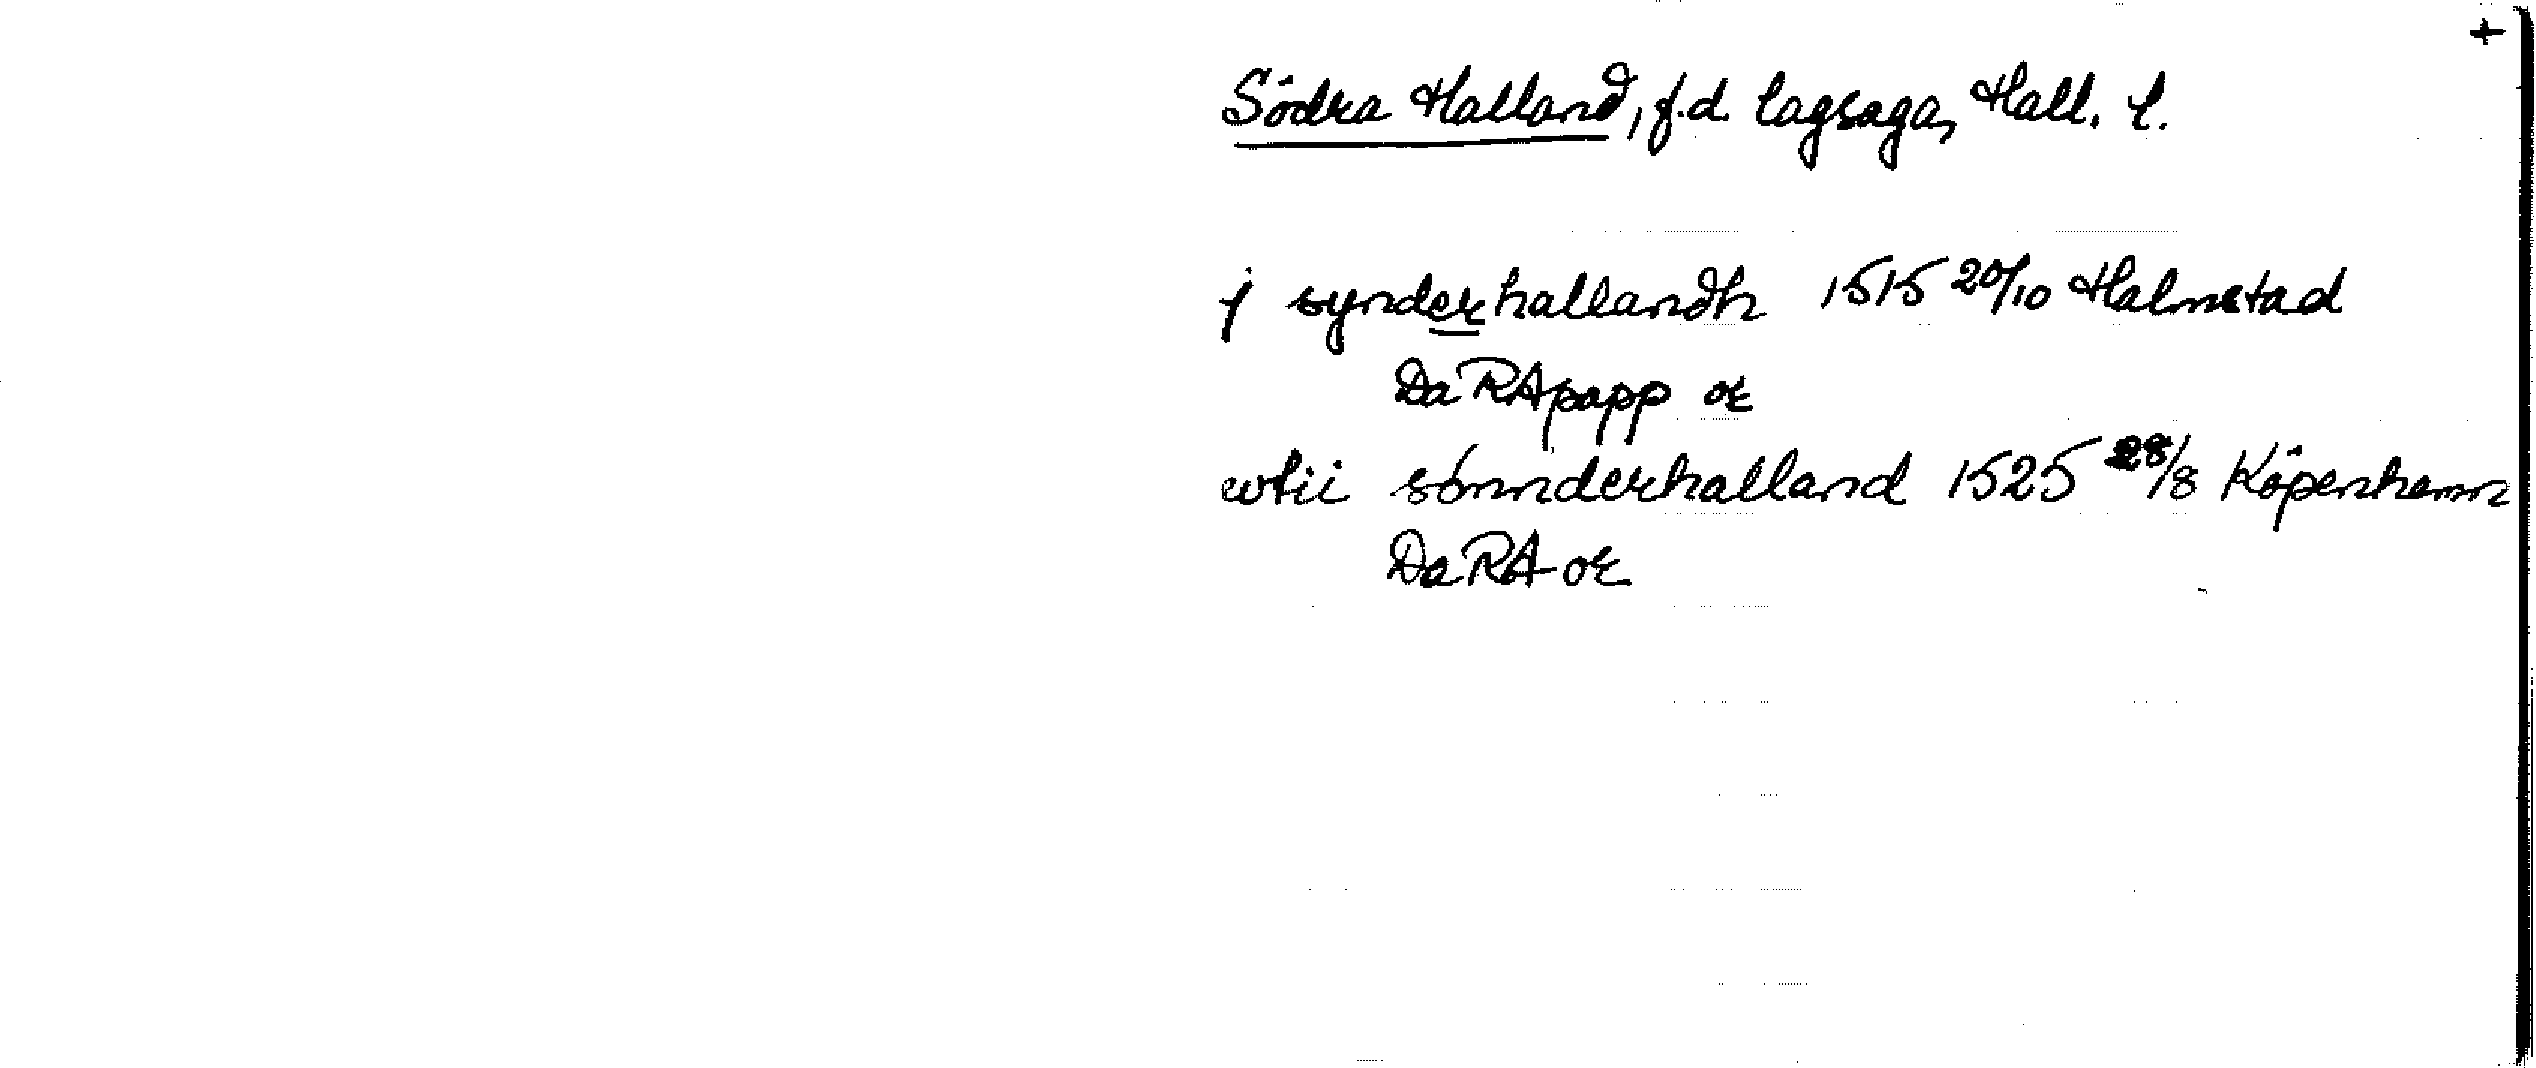 +
Södra Halland, f.d. lagsaga, Hall. l.
j synderhallandh 1515 20/10 Halmstad
DaRApapp or
wtii sónnderhalland 1525 28/8 Köpenhamn
DaRA or